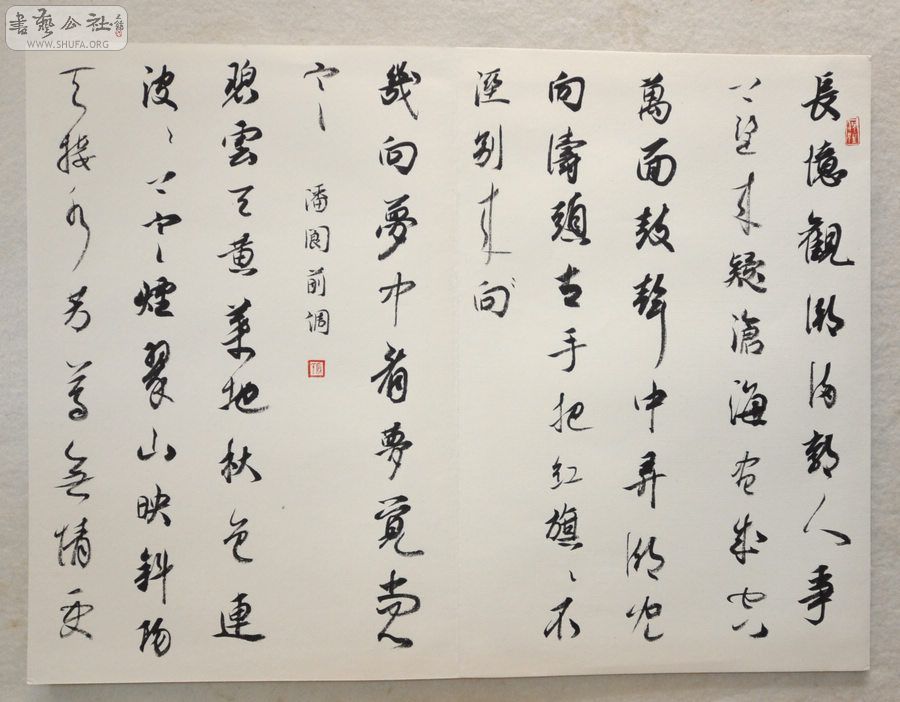 長憶觀潮滿郭人爭
上望來疑滄海盡成空
萬面鼓聲中弄潮兒
向濤頭立手把紅旗〻不
溼別來向
幾向夢中看夢覺尚心
寒
潘閬前調
碧雲天黃葉地秋色連
波〻上寒煙翠山映斜陽
天接水芳草無情更
書藝公社
WWW.SHUFA.ORG